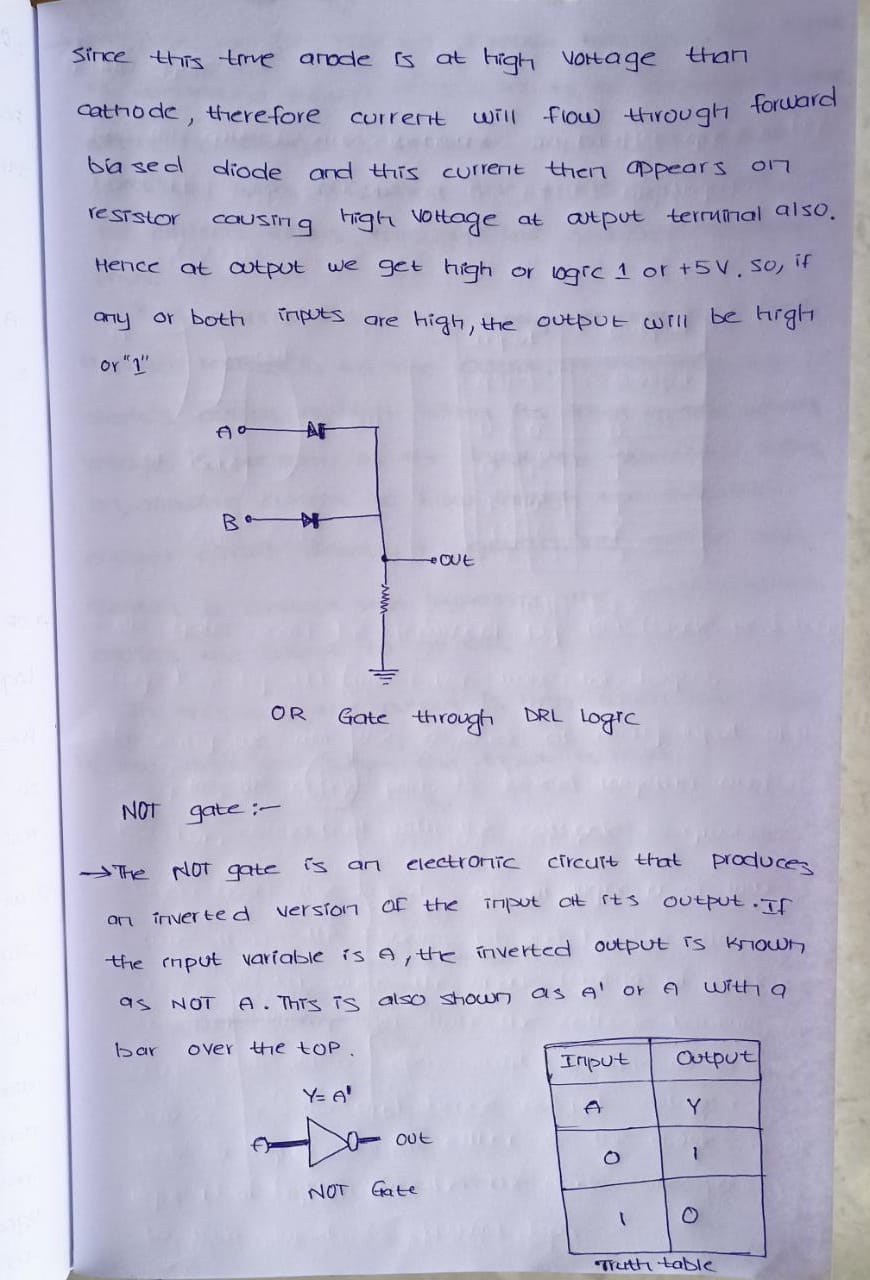 Since this time anode is at high voltage than
cathode, therefore current will flow through forward
biased diode and this current then appears on
resistor causing high voltage at output terminal also.
Hence at output we get high or logic 1 or +5V. So, if
any or both inputs are high, the output will be high
or "1"
A
B
OUt
OR Gate through DRL Logic
NOT gate :-
→ The NOT gate is an electronic circuit that produces
an inverted version of the input at its output. If
the input variable is A, the inverted output is known
as NOT A. This is also shown as A' or A with a
bar over the top.
Input Output
A Y
0 1
1 0
Truth table
Y= A'
A OUt
NOT Gate